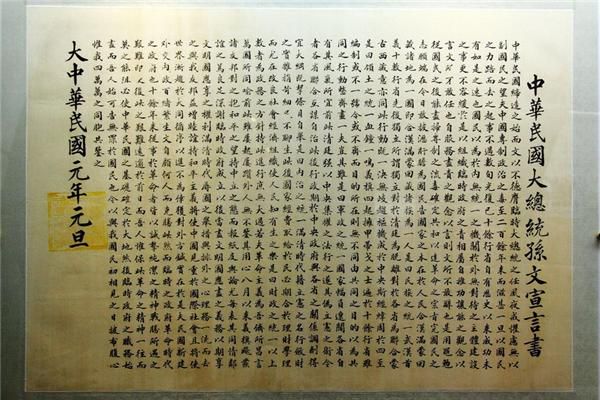 中華民國大總統孫文宣言書
中華民國締造之始而文以不德膺臨時大總統之任夙夜戒懼慮無以
副國民之望夫中國專制政治之毒至二百餘年來而滋甚一旦以國民
之力踣而去之起事不過數旬光復已十餘行省自有歷史以來成功未
有如是之速也國民以為於內無統一之機關於外無對待之主體建設
之事更不容緩於是以組織臨時政府之責相屬自推功讓能之觀念以
言文所不敢任也自服務盡責之觀念以言則文所不敢辭也是用黽勉
從國民之後能盡掃專制之流毒確定共和以達革命之宗旨完國民之
志願端在今日敢披瀝肝膽為國民告國家之本在於人民合漢滿蒙回
藏諸地為一國即合漢滿蒙回藏諸族為一人是曰民族之統一武漢首
義十數行省先後獨立所謂獨立對於清廷為脫離對於各省為聯合蒙
古西藏意亦同此行動既一決無歧趨樞機成於中央斯經緯周於四至
是曰領土之統一血鐘一鳴義旗四起擁甲帶戈之士遍於十餘行省雖
編制或不一號令或不齊而目的所在則無不同由共同之目的以為共
同之行動整齊畫一夫豈其難是曰軍政之統一國家幅員遼闊各省自
有其風氣所宜前此清廷強以中央集權之法行之遂其偽立憲之術今
者各省聯合互謀自治此後行政期於中央政府與各省之關係調劑得
宜大綱既挈條目自舉是曰內治之統一滿清時代藉立憲之名行斂財
之實雜捐苛細民不聊生此後國家經費取給於民必期合於理財學理
而尤在改良社會經濟組織使人民知有生之樂是曰財政之統一以上
數者為政務之方針持此進行庶無大過若夫革命主義為吾儕所昌言
萬國所同喻前此雖屢起屢躓外人無不鑒其用心八月以來義旗飆發
諸友邦對之抱和平之望持中立之態而報紙及輿論尤每表其同情鄰
誼之篤良足深謝臨時政府成立以後當盡文明國應盡之義務以期享
文明國應享之權利滿清時代辱國之舉措與排外之心理務一洗而去
之與我友邦益增睦誼持和平主義將使中國見重於國際社會且將使
世界漸趨於大同循序以進不為倖獲對外方針實在於是夫民國新建
外交內政百緒繁生文自顧何人而克勝此然而臨時之政府革命時代
之政府也十餘年來從事於革命者皆以誠摯純潔之精神戰勝所遇之
艱難即使後此之艱難遠逾於前日而吾人惟保此革命之精神一往而
莫之能阻必使中華民國之基礎確定於大地然後臨時政府之職務始
盡而吾人始可告無罪於國民也今以與我國民初相見之日披布腹心
惟我四萬萬之同胞共鑒之
大中華民國元年元旦